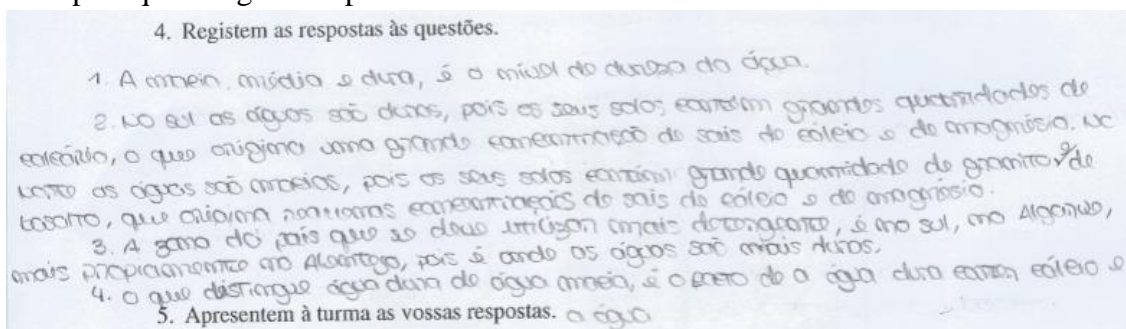 4. Registem as respostas às questões.
1. A macia, média e dura, é o nível de dureza da água.
2. No sul as águas são duras, pois os seus solos contêm grandes quantidades de
calcário, o que origina uma grande concentração de sais de cálcio e de magnésio. No
norte as águas são macias, pois os seus solos contêm grande quantidade de granito e de
basalto, que origina pequenas concentrações de sais de cálcio e de magnésio.
3. A zona do país que se deve utilizar mais detergente, é no sul, no Algarve,
mais propriamente no Alentejo, pois é onde as águas são mais duras.
4. O que distingue água dura de água macia, é o facto de a água dura conter cálcio e
5. Apresentem à turma as vossas respostas. a água